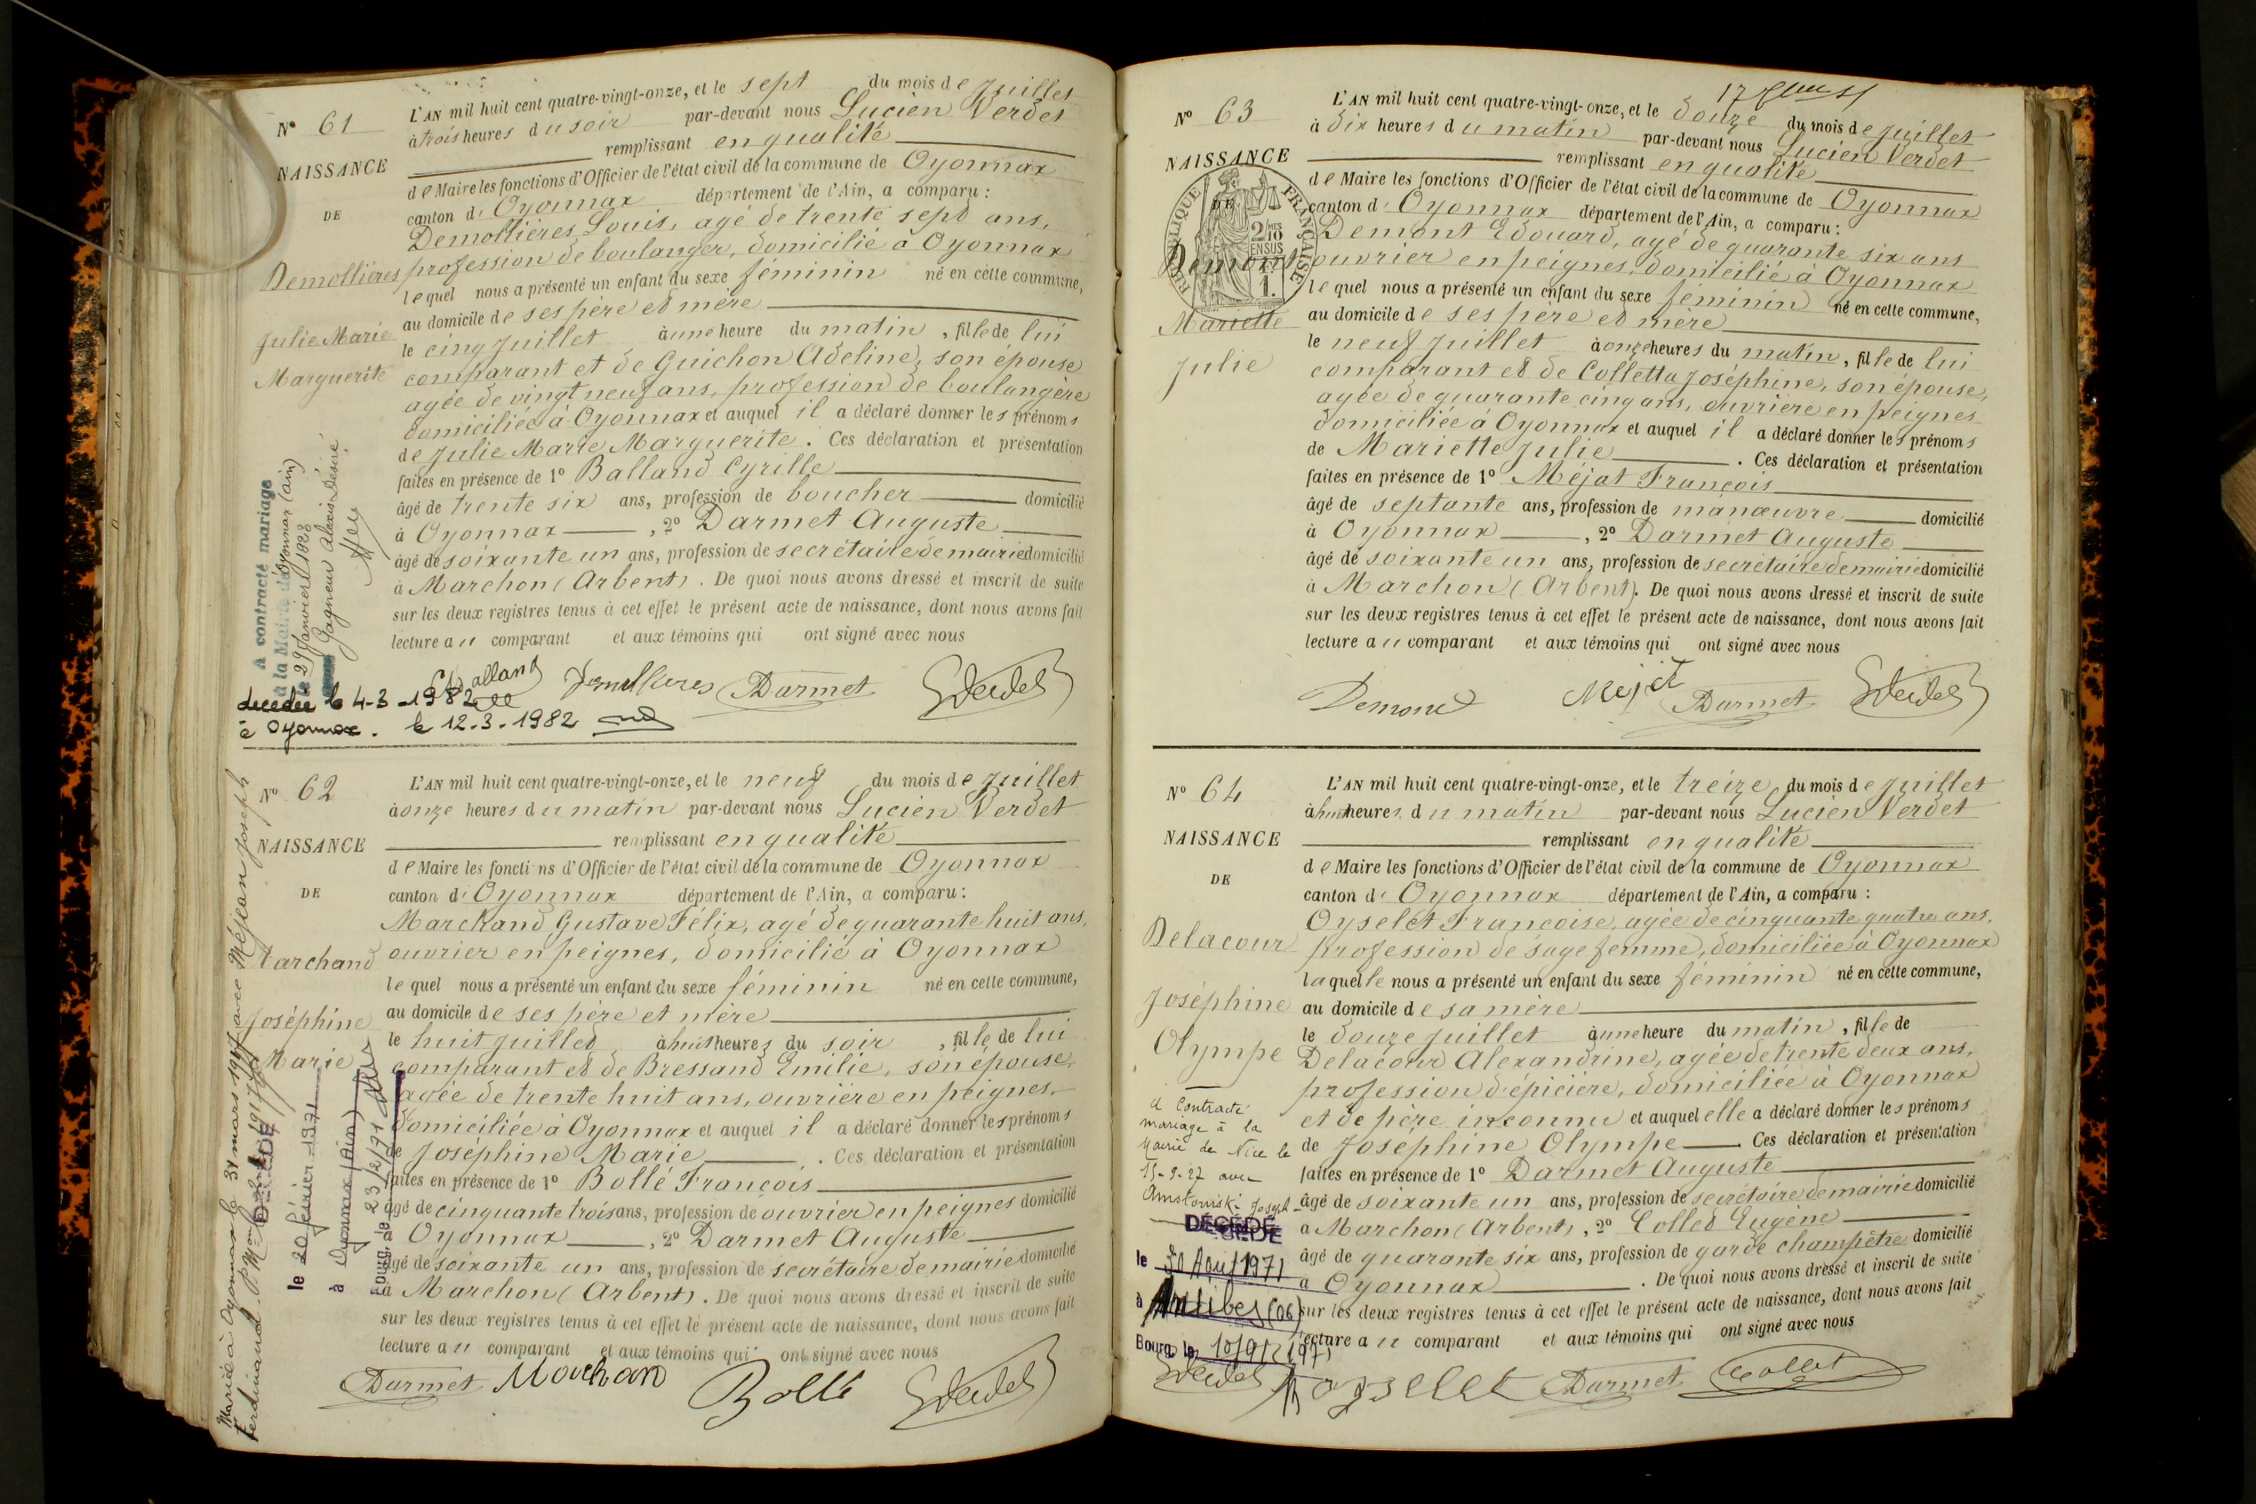 N° 61
NAISSANCE
DE
Demollières
Julie Marie
Marguerite
L'AN mil huit cent quatre-vingt-onze, et le sept du mois de Juillet
à trois heures du soir par-devant nous Lucien Verdet
remplissant en qualité
de Maire les fonctions d'Officier de l'état civil de la commune de Oyonnax
canton d' Oyonnax département de l'Ain, a comparu :
Demollières Louis, agé de trente sept ans,
profession de boulanger, domicilié à Oyonnax
lequel nous a présenté un enfant du sexe féminin né en cette commune,
au domicile de ses père et mère
le cinq Juillet à une heure du matin, fille de lui
comparant et de Guichon Adeline, son épouse
agée de vingt neuf ans, profession de boulangère
domiciliée à Oyonnax et auquel il a déclaré donner les prénoms
de Julie Marie Marguerite. Ces déclaration et présentation
faites en présence de 1° Balland Cyrille
âgé de trente six ans, profession de boucher domicilié
à Oyonnax, 2° Darmet Auguste
âgé de soixante un ans, profession de secrétaire de mairie domicilié
à Marchon (Arbent). De quoi nous avons dressé et inscrit de suite
sur les deux registres tenus à cet effet le présent acte de naissance, dont nous avons fait
lecture au comparant et aux témoins qui ont signé avec nous
Balland Demollières Darmet Verdet
A contracté mariage
à la Mairie de Oyonnax (ain)
le 29 Janvier 1928
Gagneur Alexis Désiré
décédée le 4-3-1982
à Oyonnax. le 12-3-1982
N° 62
NAISSANCE
DE
Marchand
Joséphine
Marie
L'AN mil huit cent quatre-vingt-onze, et le neuf du mois de Juillet
à onze heures du matin par-devant nous Lucien Verdet
remplissant en qualité
de Maire les fonctions d'Officier de l'état civil de la commune de Oyonnax
canton d' Oyonnax département de l'Ain, a comparu :
Marchand Gustave Félix, agé de quarante huit ans,
ouvrier en peignes, domicilié à Oyonnax
lequel nous a présenté un enfant du sexe féminin né en cette commune,
au domicile de ses père et mère
le huit juillet à huit heures du soir, fille de lui
comparant et de Bressand Emilie, son épouse,
agée de trente huit ans, ouvrière en peignes,
domiciliée à Oyonnax et auquel il a déclaré donner les prénoms
de Joséphine Marie. Ces déclaration et présentation
faites en présence de 1° Bollé François
âgé de cinquante trois ans, profession de ouvrier en peignes domicilié
à Oyonnax, 2° Darmet Auguste
âgé de soixante un ans, profession de secrétaire de mairie domicilié
à Marchon (Arbent). De quoi nous avons dressé et inscrit de suite
sur les deux registres tenus à cet effet le présent acte de naissance, dont nous avons fait
lecture au comparant et aux témoins qui ont signé avec nous
Darmet Marchan Bollé Verdet
Mariée à Oyonnax le 31 mars 1917 avec Méjean Joseph
Ferdinand.
DÉCÉDÉ
le 20 février 1971
à Oyonnax (Ain)
Bourg, le 23/2/71
N° 63
NAISSANCE
DE
Demont
Mariette
Julie
RÉPUBLIQUE FRANÇAISE
2/10 EN SUS
1.
L'AN mil huit cent quatre-vingt-onze, et le douze du mois de Juillet
à dix heures du matin par-devant nous Lucien Verdet
remplissant en qualité
de Maire les fonctions d'Officier de l'état civil de la commune de Oyonnax
canton d' Oyonnax département de l'Ain, a comparu :
Demont Edouard, agé de quarante six ans
ouvrier en peignes, domicilié à Oyonnax
lequel nous a présenté un enfant du sexe féminin né en cette commune,
au domicile de ses père et mère
le neuf Juillet à onze heures du matin, fille de lui
comparant et de Colletta Joséphine, son épouse,
agée de quarante cinq ans, ouvrière en peignes
domiciliée à Oyonnax et auquel il a déclaré donner les prénoms
de Mariette Julie. Ces déclaration et présentation
faites en présence de 1° Méjat François
âgé de septante ans, profession de manœuvre domicilié
à Oyonnax, 2° Darmet Auguste
âgé de soixante un ans, profession de secrétaire de mairie domicilié
à Marchon (Arbent). De quoi nous avons dressé et inscrit de suite
sur les deux registres tenus à cet effet le présent acte de naissance, dont nous avons fait
lecture au comparant et aux témoins qui ont signé avec nous
Demont Mejat Darmet Verdet
N° 64
NAISSANCE
DE
Delacour
Joséphine
Olympe
L'AN mil huit cent quatre-vingt-onze, et le treize du mois de Juillet
à huit heures du matin par-devant nous Lucien Verdet
remplissant en qualité
de Maire les fonctions d'Officier de l'état civil de la commune de Oyonnax
canton d' Oyonnax département de l'Ain, a comparu :
Oyselet Françoise, agée de cinquante quatre ans,
profession de sage femme, domiciliée à Oyonnax
laquelle nous a présenté un enfant du sexe féminin né en cette commune,
au domicile de sa mère
le douze juillet à une heure du matin, fille de
Delacour Alexandrine, agée de trente deux ans,
profession d'épicière, domiciliée à Oyonnax
et de père inconnu et auquel elle a déclaré donner les prénoms
de Joséphine Olympe. Ces déclaration et présentation
faites en présence de 1° Darmet Auguste
âgé de soixante un ans, profession de secrétaire de mairie domicilié
à Marchon (Arbent), 2° Collet Eugène
âgé de quarante six ans, profession de garde champêtre domicilié
à Oyonnax. De quoi nous avons dressé et inscrit de suite
sur les deux registres tenus à cet effet le présent acte de naissance, dont nous avons fait
lecture au comparant et aux témoins qui ont signé avec nous
Verdet Oyselet Darmet Collet
A contracté
mariage à la
Mairie de Nice le
15-9-27 avec
Joseph
DÉCÉDÉ
le 30 Août 1971
à Antibes (06)
Bourg, le 10/9/1971